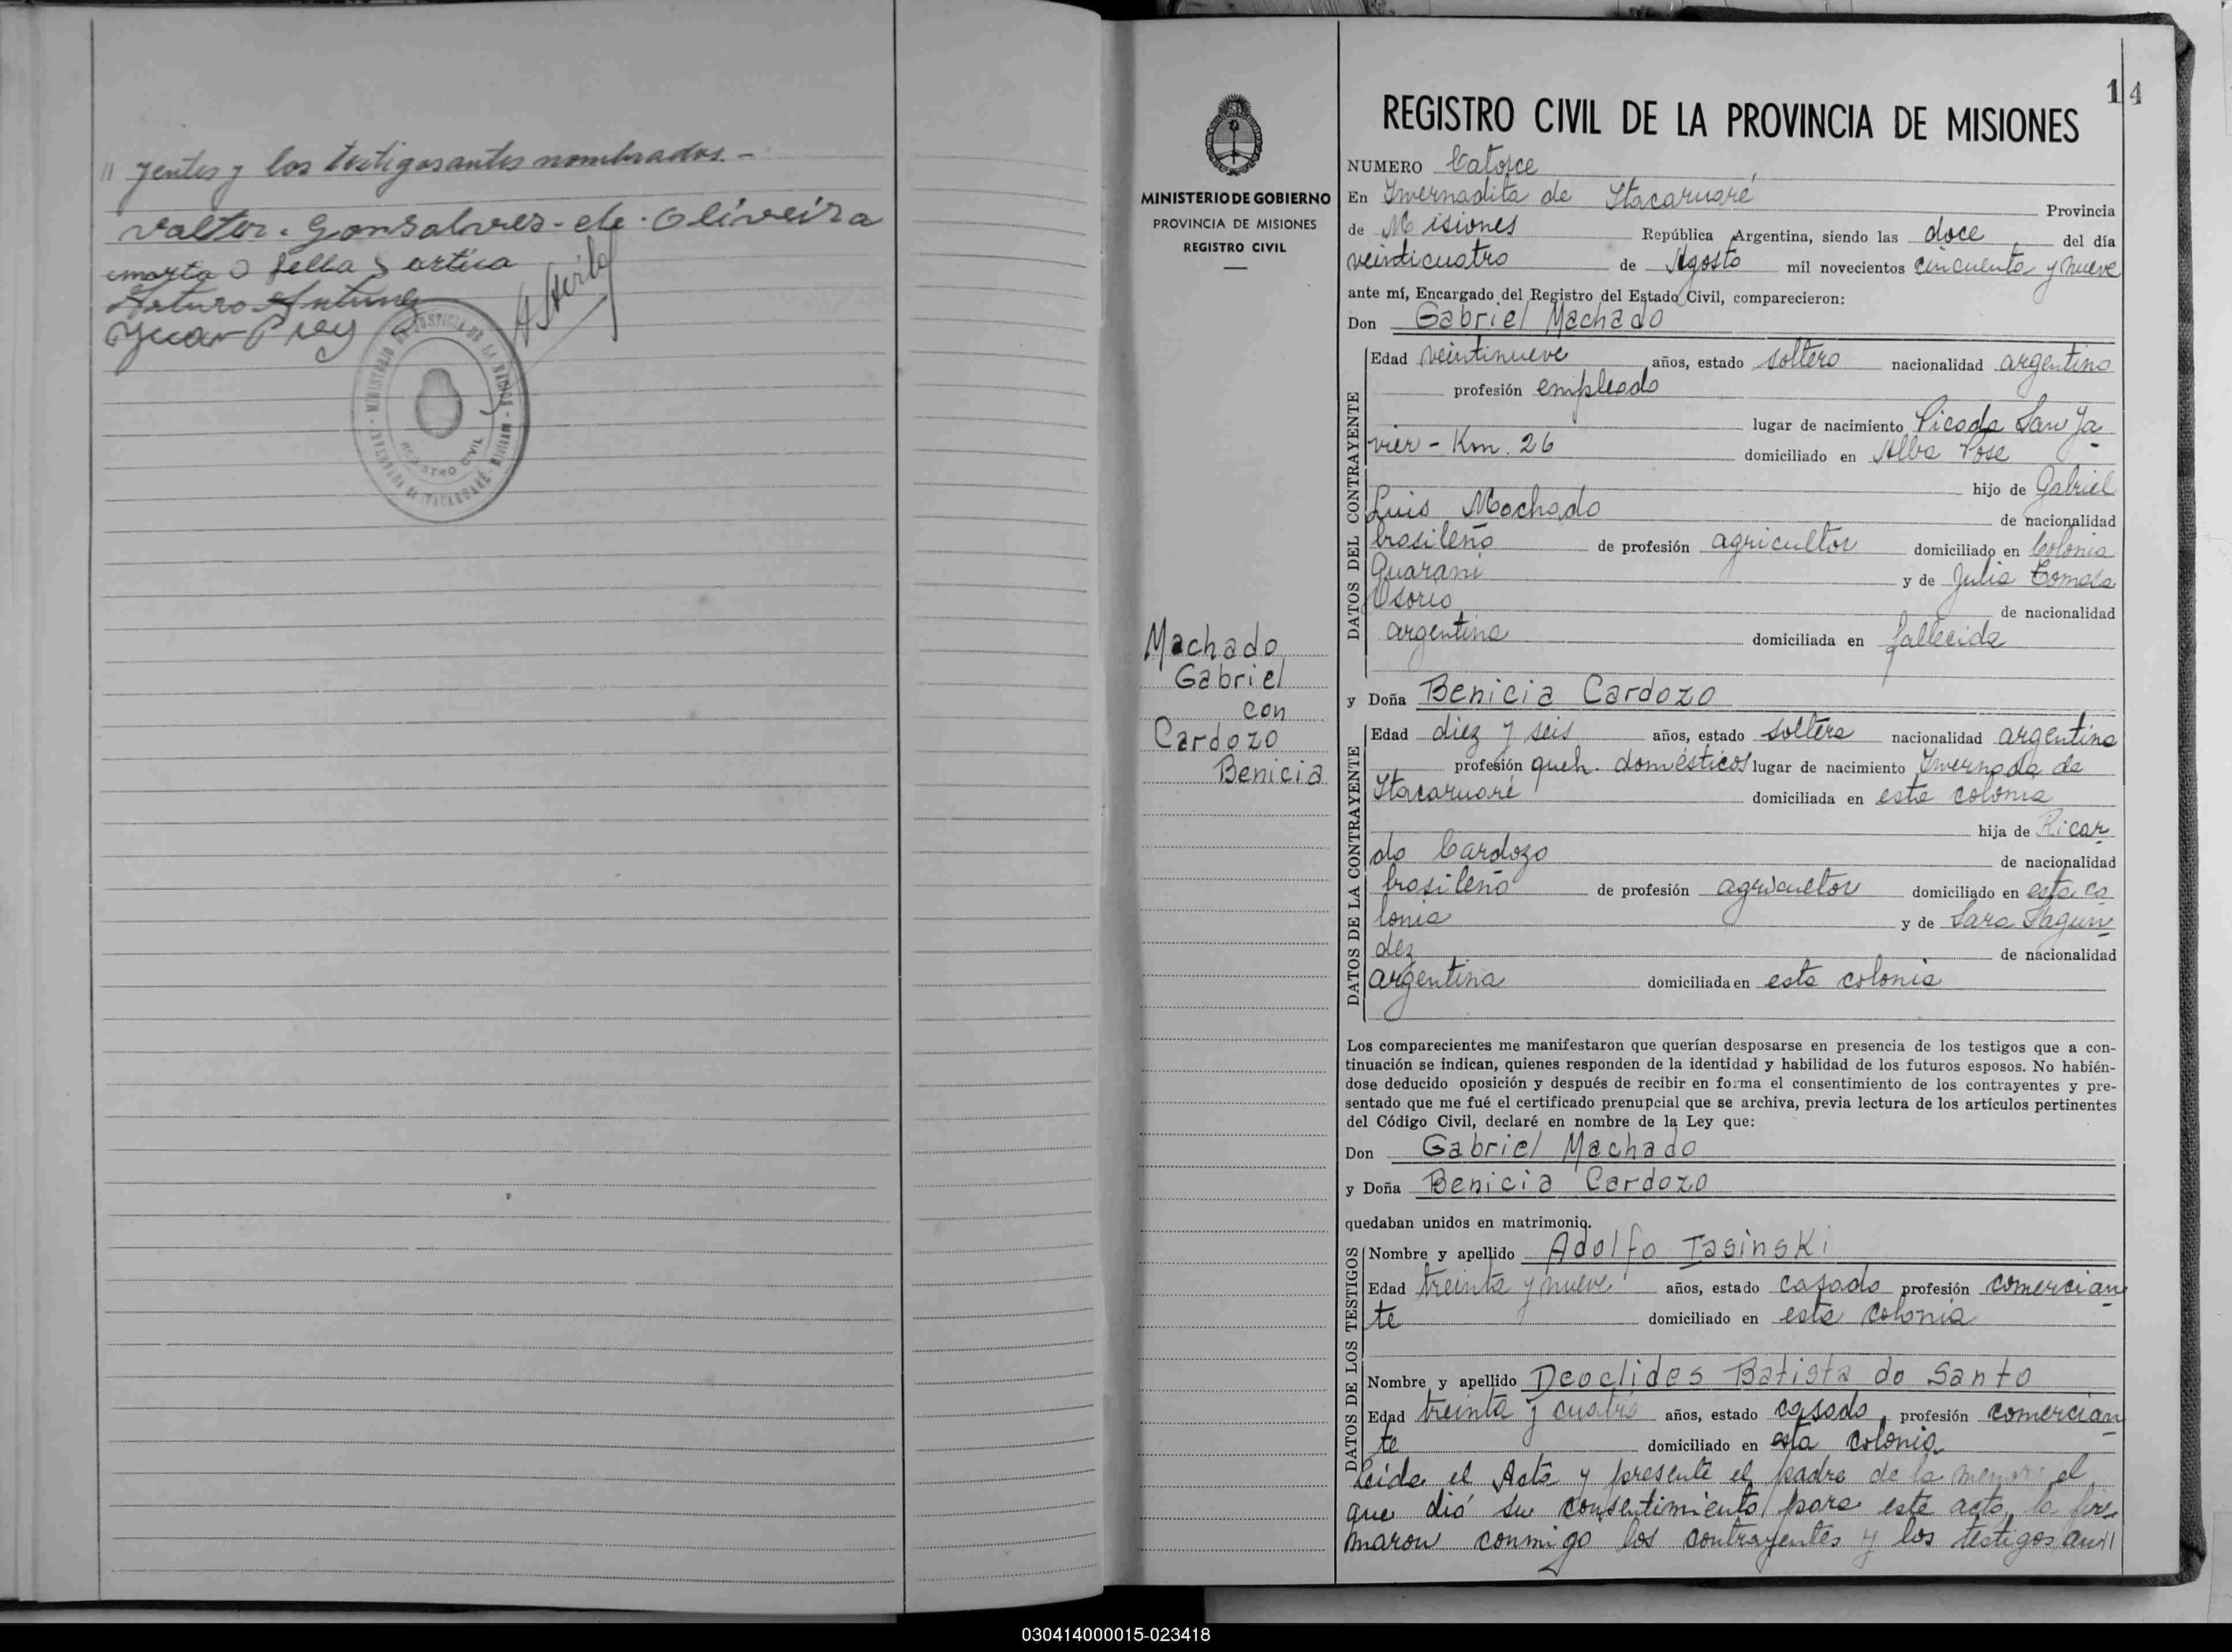 // yentes y los testigos antes nombrados.-
Valter. Gonsalves-de-Oliveira
Arturo Antunez
Juan Prey
MINISTERIO DE JUSTICIA DE LA NACION
REGISTRO CIVIL
14
MINISTERIO DE GOBIERNO
PROVINCIA DE MISIONES
REGISTRO CIVIL
Machado
Gabriel
con
Cardozo
Benicia
REGISTRO CIVIL DE LA PROVINCIA DE MISIONES
NUMERO Catorce
En Invernadita de Itacaruaré Provincia
de Misiones República Argentina, siendo las doce del día
veinticuatro de Agosto mil novecientos cincuenta y nueve
ante mí, Encargado del Registro del Estado Civil, comparecieron:
Don Gabriel Machado
DATOS DEL CONTRAYENTE
Edad veintinueve años, estado soltero nacionalidad argentino
profesión empleado
lugar de nacimiento Picada San Ja-
vier - Km. 26 domiciliado en Alba Pose
hijo de Gabriel
Luis Machado de nacionalidad
brasileño de profesión agricultor domiciliado en Colonia
Guaraní y de Julia Tomasa
Osorio de nacionalidad
argentina domiciliada en fallecida
y Doña Benicia Cardozo
DATOS DE LA CONTRAYENTE
Edad diez y seis años, estado soltera nacionalidad argentina
profesión queh. domésticos lugar de nacimiento Invernada de
Itacaruaré domiciliada en esta colonia
hija de Ricar-
do Cardozo de nacionalidad
brasileño de profesión agricultor domiciliado en esta co-
lonia y de Sara Fagun-
dez de nacionalidad
argentina domiciliada en esta colonia
Los comparecientes me manifestaron que querían desposarse en presencia de los testigos que a con-
tinuación se indican, quienes responden de la identidad y habilidad de los futuros esposos. No habién-
dose deducido oposición y después de recibir en forma el consentimiento de los contrayentes y pre-
sentado que me fué el certificado prenupcial que se archiva, previa lectura de los artículos pertinentes
del Código Civil, declaré en nombre de la Ley que:
Don Gabriel Machado
y Doña Benicia Cardozo
quedaban unidos en matrimonio.
DATOS DE LOS TESTIGOS
Nombre y apellido Adolfo Iasinski
Edad treinta y nueve años, estado casado profesión comercian-
te domiciliado en esta colonia
Nombre y apellido Deoclides Batista do Santo
Edad treinta y cuatro años, estado casado profesión comercian-
te domiciliado en esta colonia
Leida el Acta y presente el padre de la menor el
que dió su consentimiento para este acto, la fir-
maron conmigo los contrayentes y los testigos an//
030414000015-023418